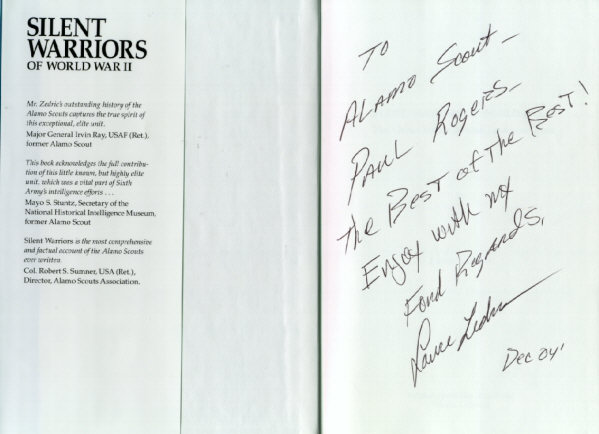 SILENT
WARRIORS
OF WORLD WAR II
Mr. Zedric's outstanding history of the
Alamo Scouts captures the true spirit of
this exceptional, elite unit.
Major General Irvin Ray, USAF (Ret.),
former Alamo Scout
This book acknowledges the full contribu-
tion of this little known, but highly elite
unit, which was a vital part of Sixth
Army's intelligence efforts . . .
Mayo S. Stuntz, Secretary of the
National Historical Intelligence Museum,
former Alamo Scout
Silent Warriors is the most comprehensive
and factual account of the Alamo Scouts
ever written.
Col. Robert S. Sumner, USA (Ret.),
Director, Alamo Scouts Association.
To
Alamo Scout –
Paul Rogers –
The Best of the Best!
Enjoy with my
Fond Regards,
Lance Zedric
Dec 04'